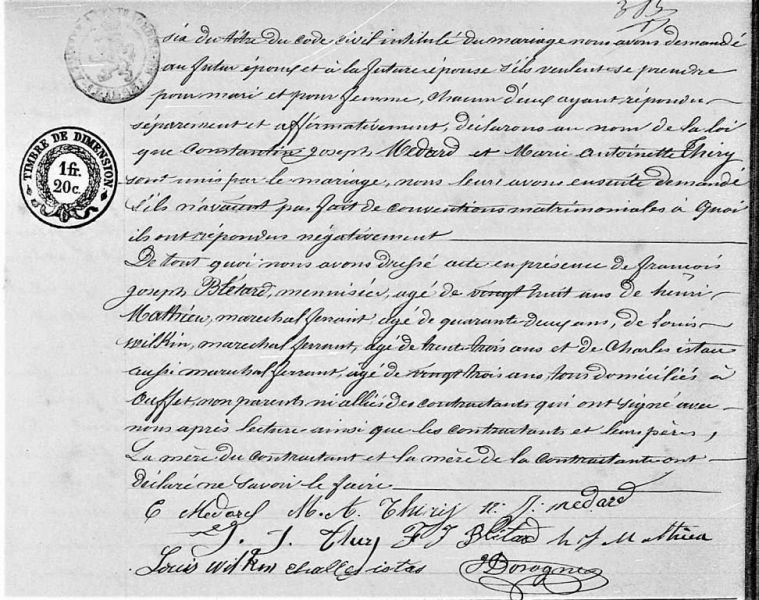 313
TIMBRE DE DIMENSION
1 fr.
20 c.
six du titre du code civil intitulé du mariage nous avons demandé
au futur époux et à la future épouse s'ils veulent se prendre
pour mari et pour femme, chacun d'eux ayant répondu
séparement et affirmativement, déclarons au nom de la loi
que Constantin Joseph Medard et Marie Antoinette Thiry
sont unis par le mariage, nous leur avons ensuite demandé
s'ils n'avaient pas fait de conventions matrimoniales à quoi
ils ont répondus négativement
De tout quoi nous avons dressé acte en présence de françois
joseph Blétard, mennisier, agé de vingt huit ans de henri
Mathieu, marechal ferrant, agé de quarante deux ans, de Louis
wilkin, marechal ferrant, agé de trente trois ans et de Charles istau
aussi marechal ferrant, agé de vingt trois ans, tous domiciliés à
ouffet, non parents ni alliés des contractants qui ont signé avec
nous après lecture ainsi que les contractants et leurs pères,
La mère du contractant et la mère de la contractante ont
déclaré ne savoir le faire
C Medard M. A. Thiry n. J. medard
J. J. Thiry F J Blétard h J Mathieu
Louis wilkin challes istas